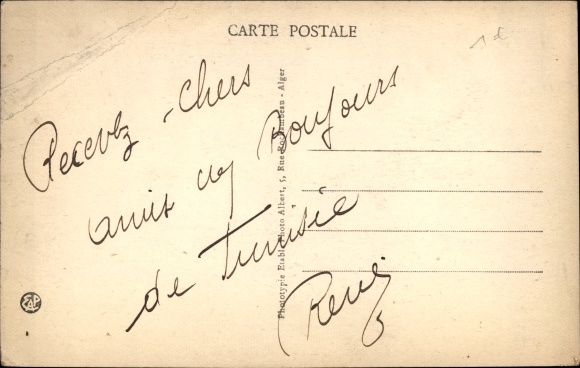 CARTE POSTALE
Recevez chers
amis ces Bonjours
de Tunisie
René
Phototypie Etabl. Photo Albert, 5, Rue Rochambeau - Alger